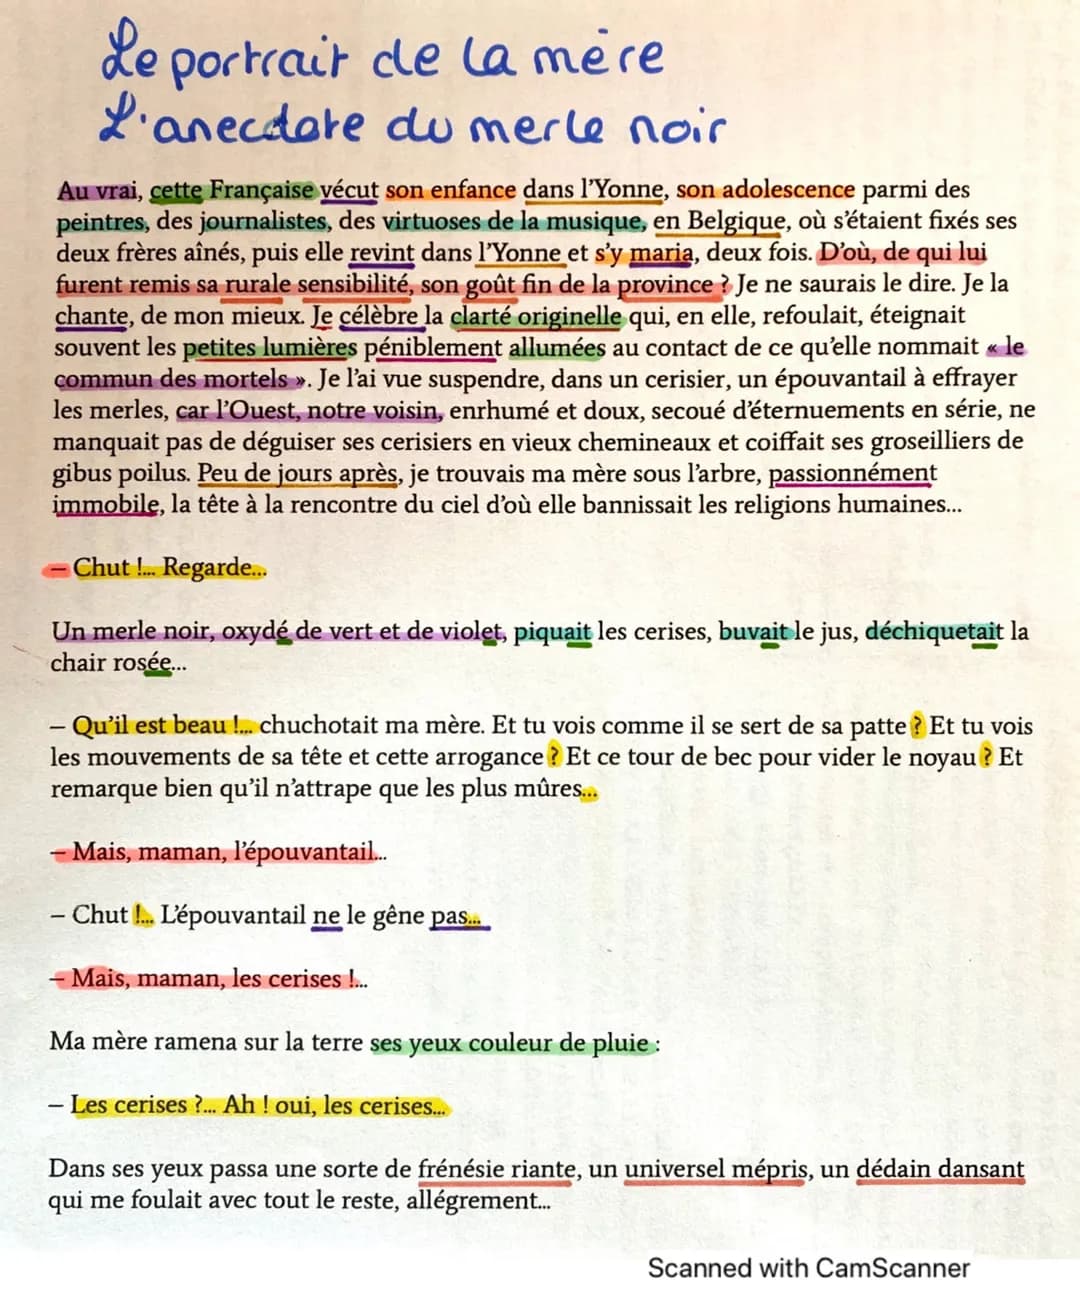 Le portrait de la mère
L'anecdote du merle noir
Au vrai, cette Française vécut son enfance dans l'Yonne, son adolescence parmi des
peintres, des journalistes, des virtuoses de la musique, en Belgique, où s'étaient fixés ses
deux frères aînés, puis elle revint dans l'Yonne et s'y maria, deux fois. D'où, de qui lui
furent remis sa rurale sensibilité, son goût fin de la province ? Je ne saurais le dire. Je la
chante, de mon mieux. Je célèbre la clarté originelle qui, en elle, refoulait, éteignait
souvent les petites lumières péniblement allumées au contact de ce qu'elle nommait « le
commun des mortels ». Je l'ai vue suspendre, dans un cerisier, un épouvantail à effrayer
les merles, car l'Ouest, notre voisin, enrhumé et doux, secoué d'éternuements en série, ne
manquait pas de déguiser ses cerisiers en vieux chemineaux et coiffait ses groseilliers de
gibus poilus. Peu de jours après, je trouvais ma mère sous l'arbre, passionnément
immobile, la tête à la rencontre du ciel d'où elle bannissait les religions humaines...
– Chut !... Regarde...
Un merle noir, oxydé de vert et de violet, piquait les cerises, buvait le jus, déchiquetait la
chair rosée...
– Qu'il est beau !... chuchotait ma mère. Et tu vois comme il se sert de sa patte ? Et tu vois
les mouvements de sa tête et cette arrogance ? Et ce tour de bec pour vider le noyau ? Et
remarque bien qu'il n'attrape que les plus mûres...
– Mais, maman, l'épouvantail...
– Chut !... L'épouvantail ne le gêne pas...
– Mais, maman, les cerises !...
Ma mère ramena sur la terre ses yeux couleur de pluie :
– Les cerises ?... Ah ! oui, les cerises...
Dans ses yeux passa une sorte de frénésie riante, un universel mépris, un dédain dansant
qui me foulait avec tout le reste, allégrement...
Scanned with CamScanner